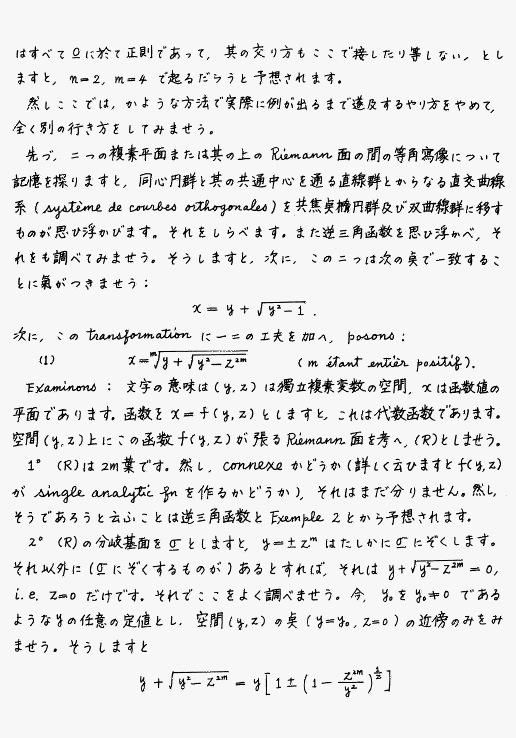 はすべて O に於て正則であって, 其の交り方もここで接したり等しない, とし
ますと, n=2, m=4 で起るだらうと予想されます。
然しここでは, かような方法で実際に例が出るまで遂及するやり方をやめて,
全く別の行き方をしてみませう。
先づ, 二つの複素平面または其の上の Riemann 面の間の等角寫像について
記憶を探りますと, 同心円群と其の共通中心を通る直線群とからなる直交曲線
系 (système de courbes orthogonales) を共焦点楕円群及び双曲線群に移す
ものが思ひ浮かびます。それをしらべます。また逆三角函数を思ひ浮かべ, そ
れをも調べてみませう。そうしますと, 次に, この二つは次の点で一致するこ
とに氣がつきませう:
x = y + √(y²−1) .
次に, この transformation に一二の工夫を加へ, posons:
(1) x = ᵐ√(y + √(y²−z²ᵐ)) (m étant entier positif).
Examinons: 文字の意味は (y, z) は獨立複素変数の空間, x は函数値の
平面であります。函数を x = f(y, z) としますと, これは代数函数であります。
空間 (y, z) 上にこの函数 f(y, z) が張る Riemann 面を考へ, (R) としませう。
1° (R) は 2m 葉です。然し, connexe かどうか (詳しく云ひますと f(y, z)
が single analytic fn を作るかどうか), それはまだ分りません。然し,
そうであろうと云ふことは逆三角函数と Exemple 2 とから予想されます。
2° (R) の分岐基面を σ としますと, y = ± zᵐ はたしかに σ にぞくします。
それ以外に (σ にぞくするものが) あるとすれば, それは y + √(y²−z²ᵐ) = 0,
i.e. z=0 だけです。それでここをよく調べませう。今, y₀ を y₀≠0 である
ような y の任意の定値とし, 空間 (y, z) の点 (y=y₀, z=0) の近傍のみをみ
ませう。そうしますと
y + √(y²−z²ᵐ) = y [ 1 ± ( 1 − z²ᵐ/y² )^½ ]